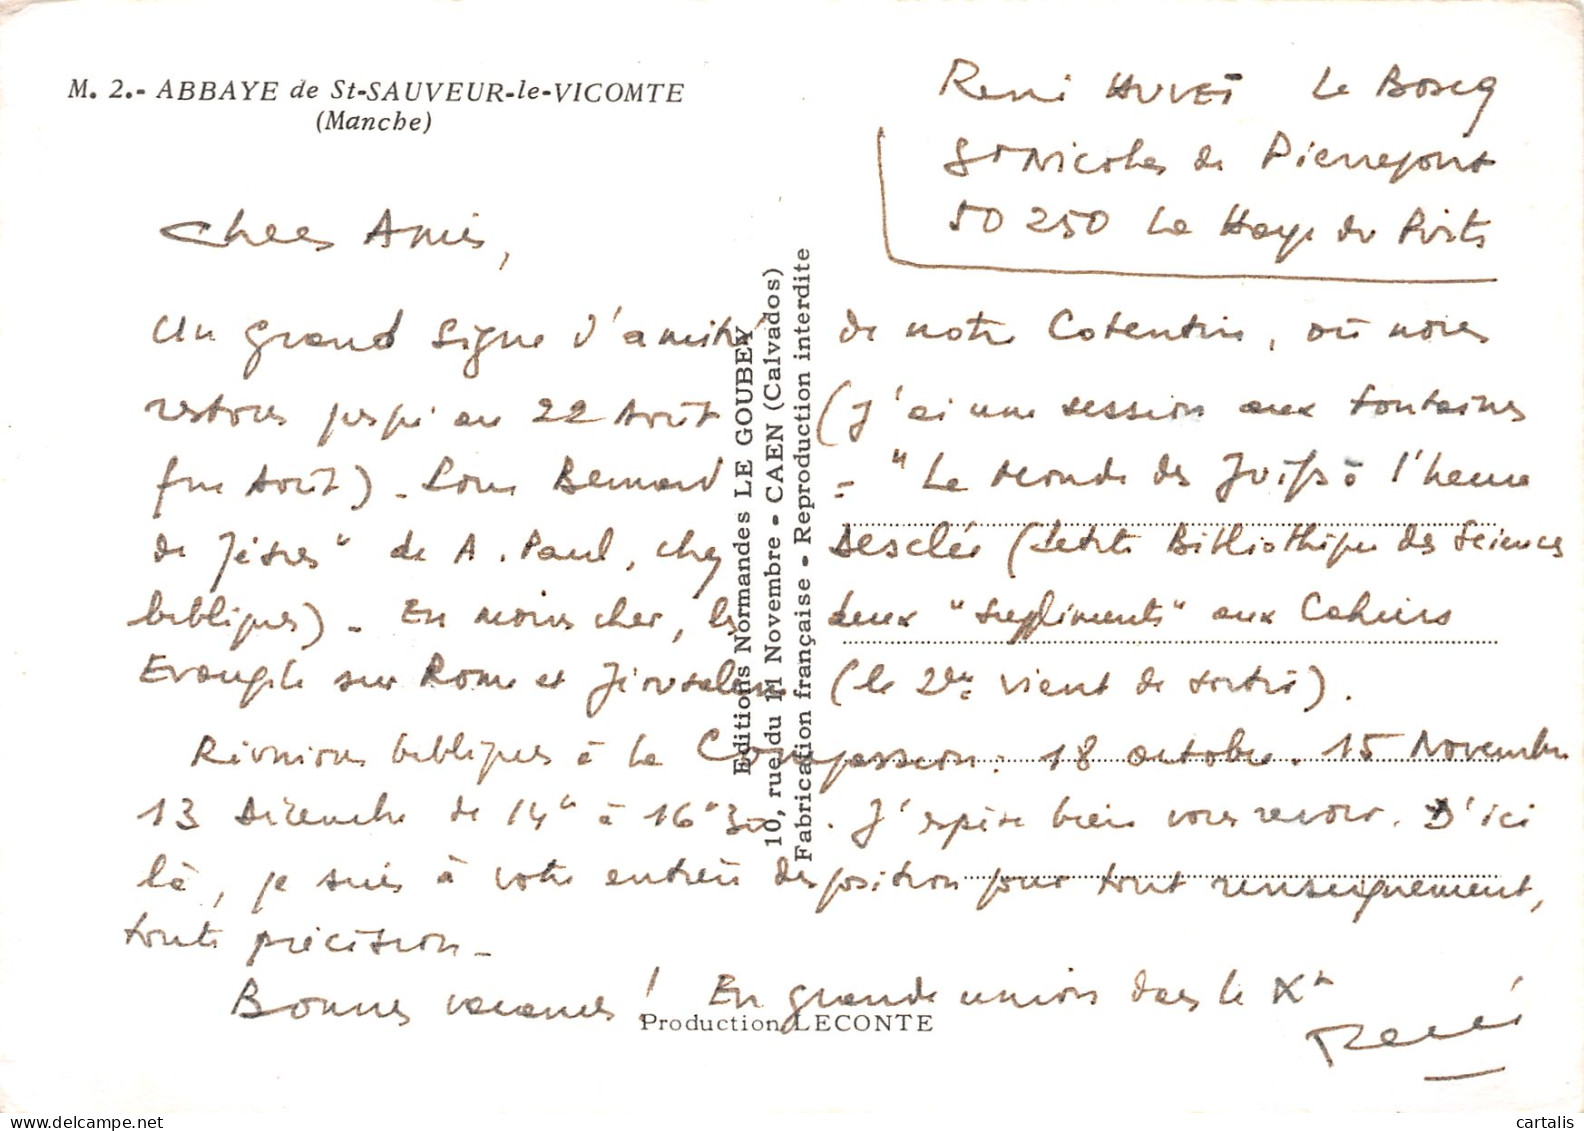 M. 2.- ABBAYE de St-SAUVEUR-le-VICOMTE
(Manche)
René HUVET Le Boscq
St Nicolas de Pierrepont
50 250 La Haye du Puits
Chers Amis,
Un grand signe d'amitié de notre Cotentin, où nous
restons jusqu'au 22 Août (J'ai une session aux Fontaines
fin Août) - Pour Bernard = "Le Monde des Juifs à l'heure
de Jésus" de A. Paul, chez Desclée (Petite Bibliothèque des Sciences
bibliques) - En moins cher, les deux "suppléments" aux Cahiers
Evangile sur Rome et Jérusalem (le 2è vient de sortir).
Réunions bibliques à la Compassion: 18 octobre. 15 Novembre
13 Décembre de 14h à 16h30. J'espère bien vous revoir. D'ici
là, je suis à votre entière disposition pour tout renseignement,
toute précision -
Bonnes vacances! En grande union dans le Xt
René
Editions Normandes LE GOUBEY
10, rue du 11 Novembre - CAEN (Calvados)
Fabrication française - Reproduction interdite
Production LECONTE
cartalis